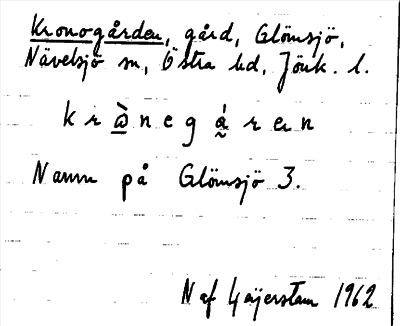 Kronogården, gård, Glömsjö,
Nävelsjö sn, Östra hd, Jönk. l.
k r ὼ n e g á̰ r e n
Namn på Glömsjö 3.
N af Geijerstam 1962